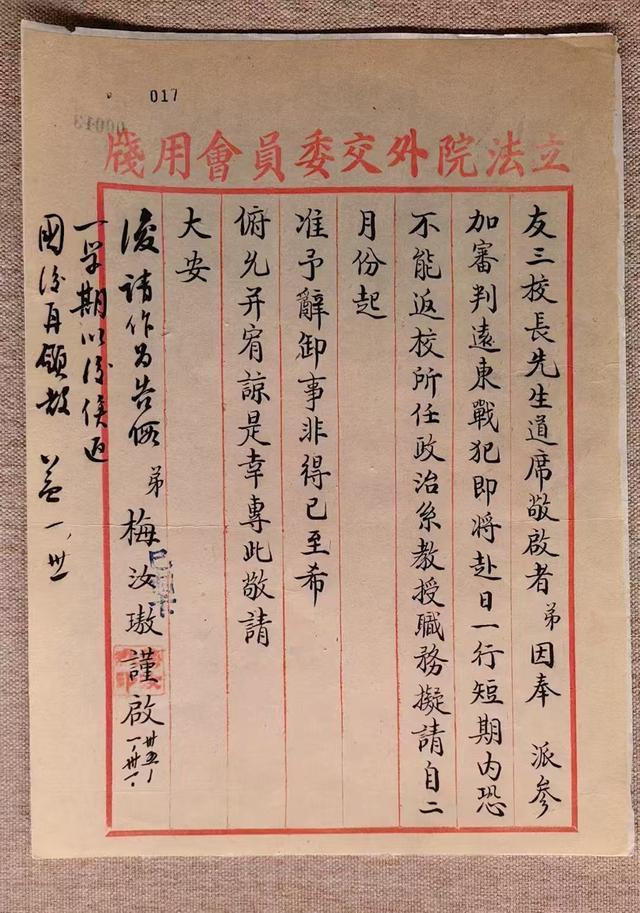 017
立法院外交委員會用牋
友三校長先生道席敬啟者弟因奉 派參
加審判遠東戰犯即將赴日一行短期内恐
不能返校所任政治系教授職務擬請自二
月份起
准予辭卸事非得已至希
俯允并宥諒是幸專此敬請
大安
弟 梅汝璈謹啟 卅五、一、卅一、
復請作为告假
一学期以後俟返
國後再領教 益 一、卅